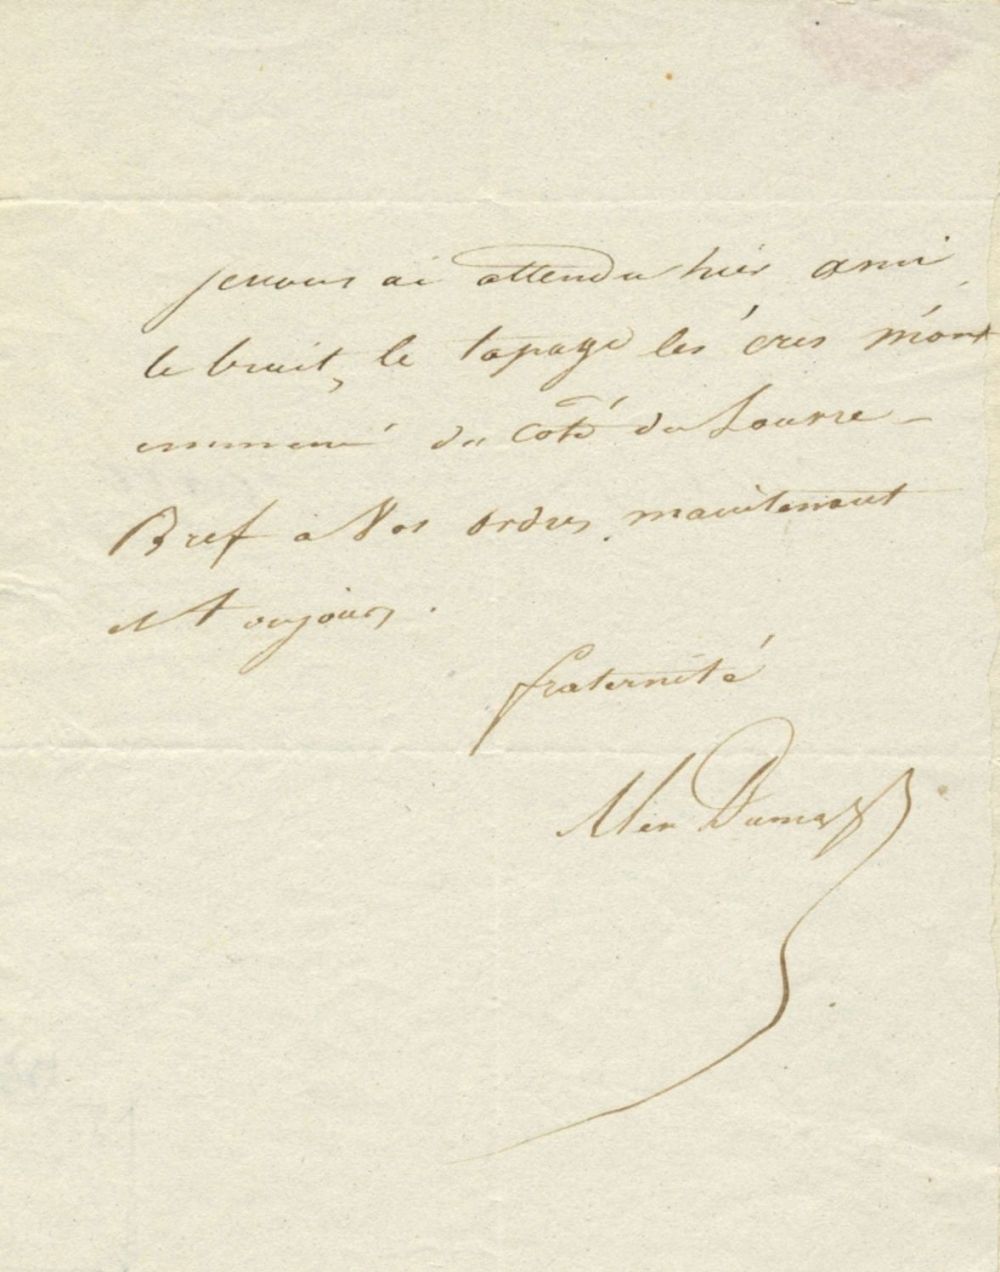 je vous ai attendu hier ami
le bruit, le tapage les cris m'ont
emmené du coté du Louvre –
Bref a Vos ordres maintenant
et toujours.
fraternité
Alex Dumas